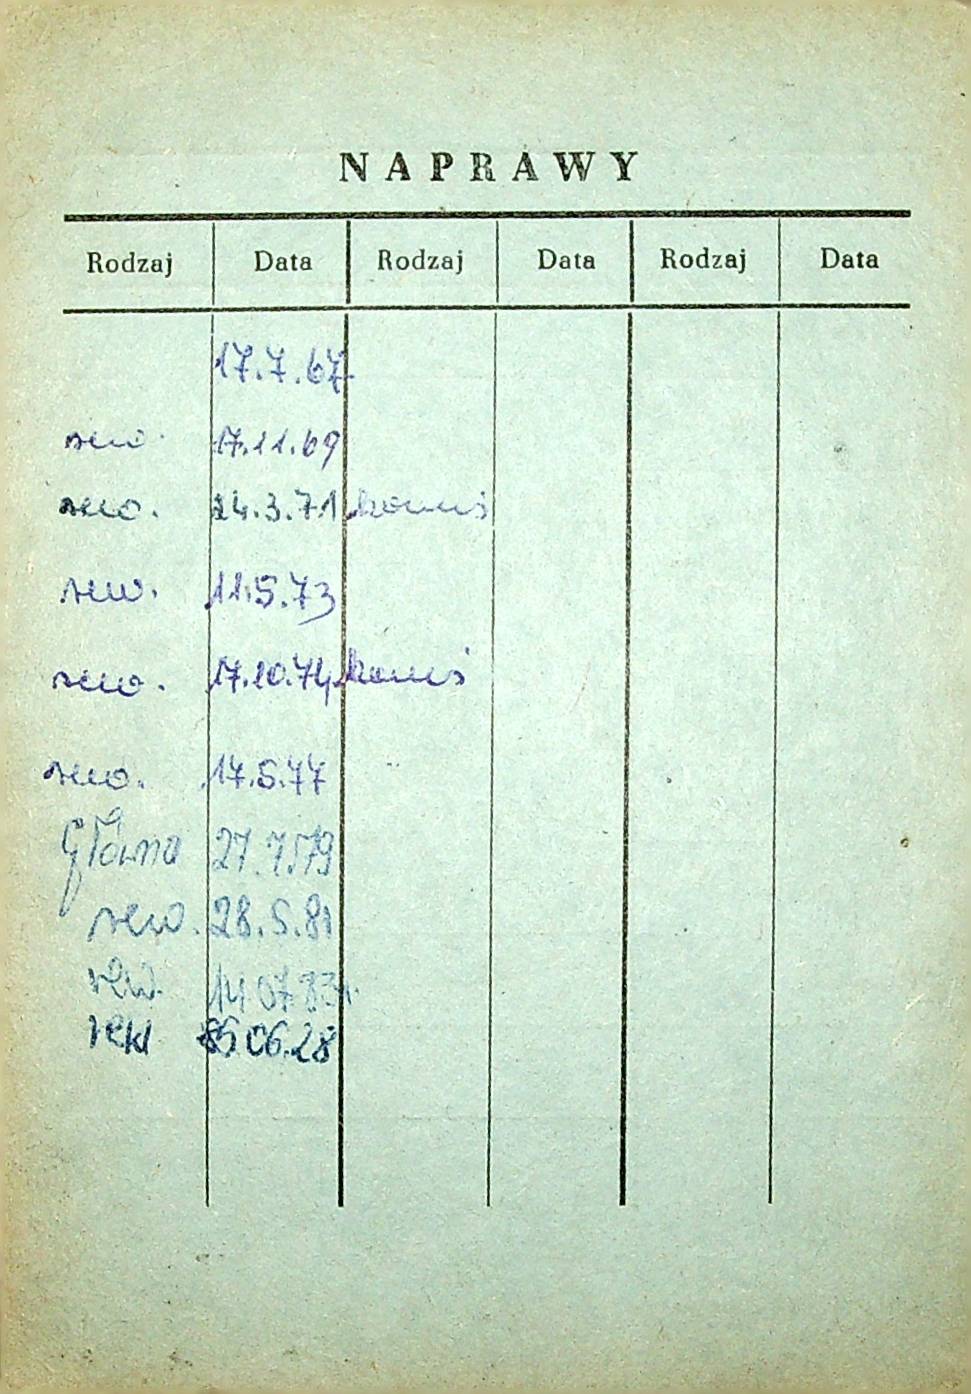 NAPRAWY
Rodzaj Data Rodzaj Data Rodzaj Data
17.7.67
rew. 17.11.69
rew. 24.3.71
rew. 11.5.73
rew. 17.10.74
rew. 17.5.77
Główna 27.7.79
rew. 28.5.81
rew. 14.07.83r.
85.06.28